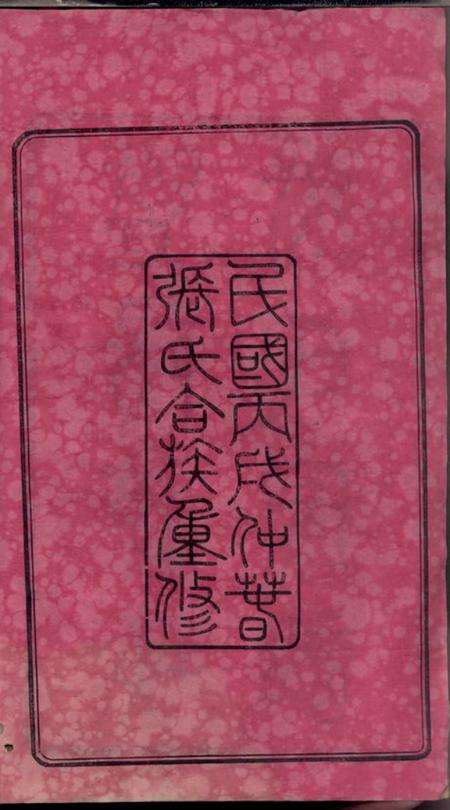 民國丙戌仲春
張氏合族重修